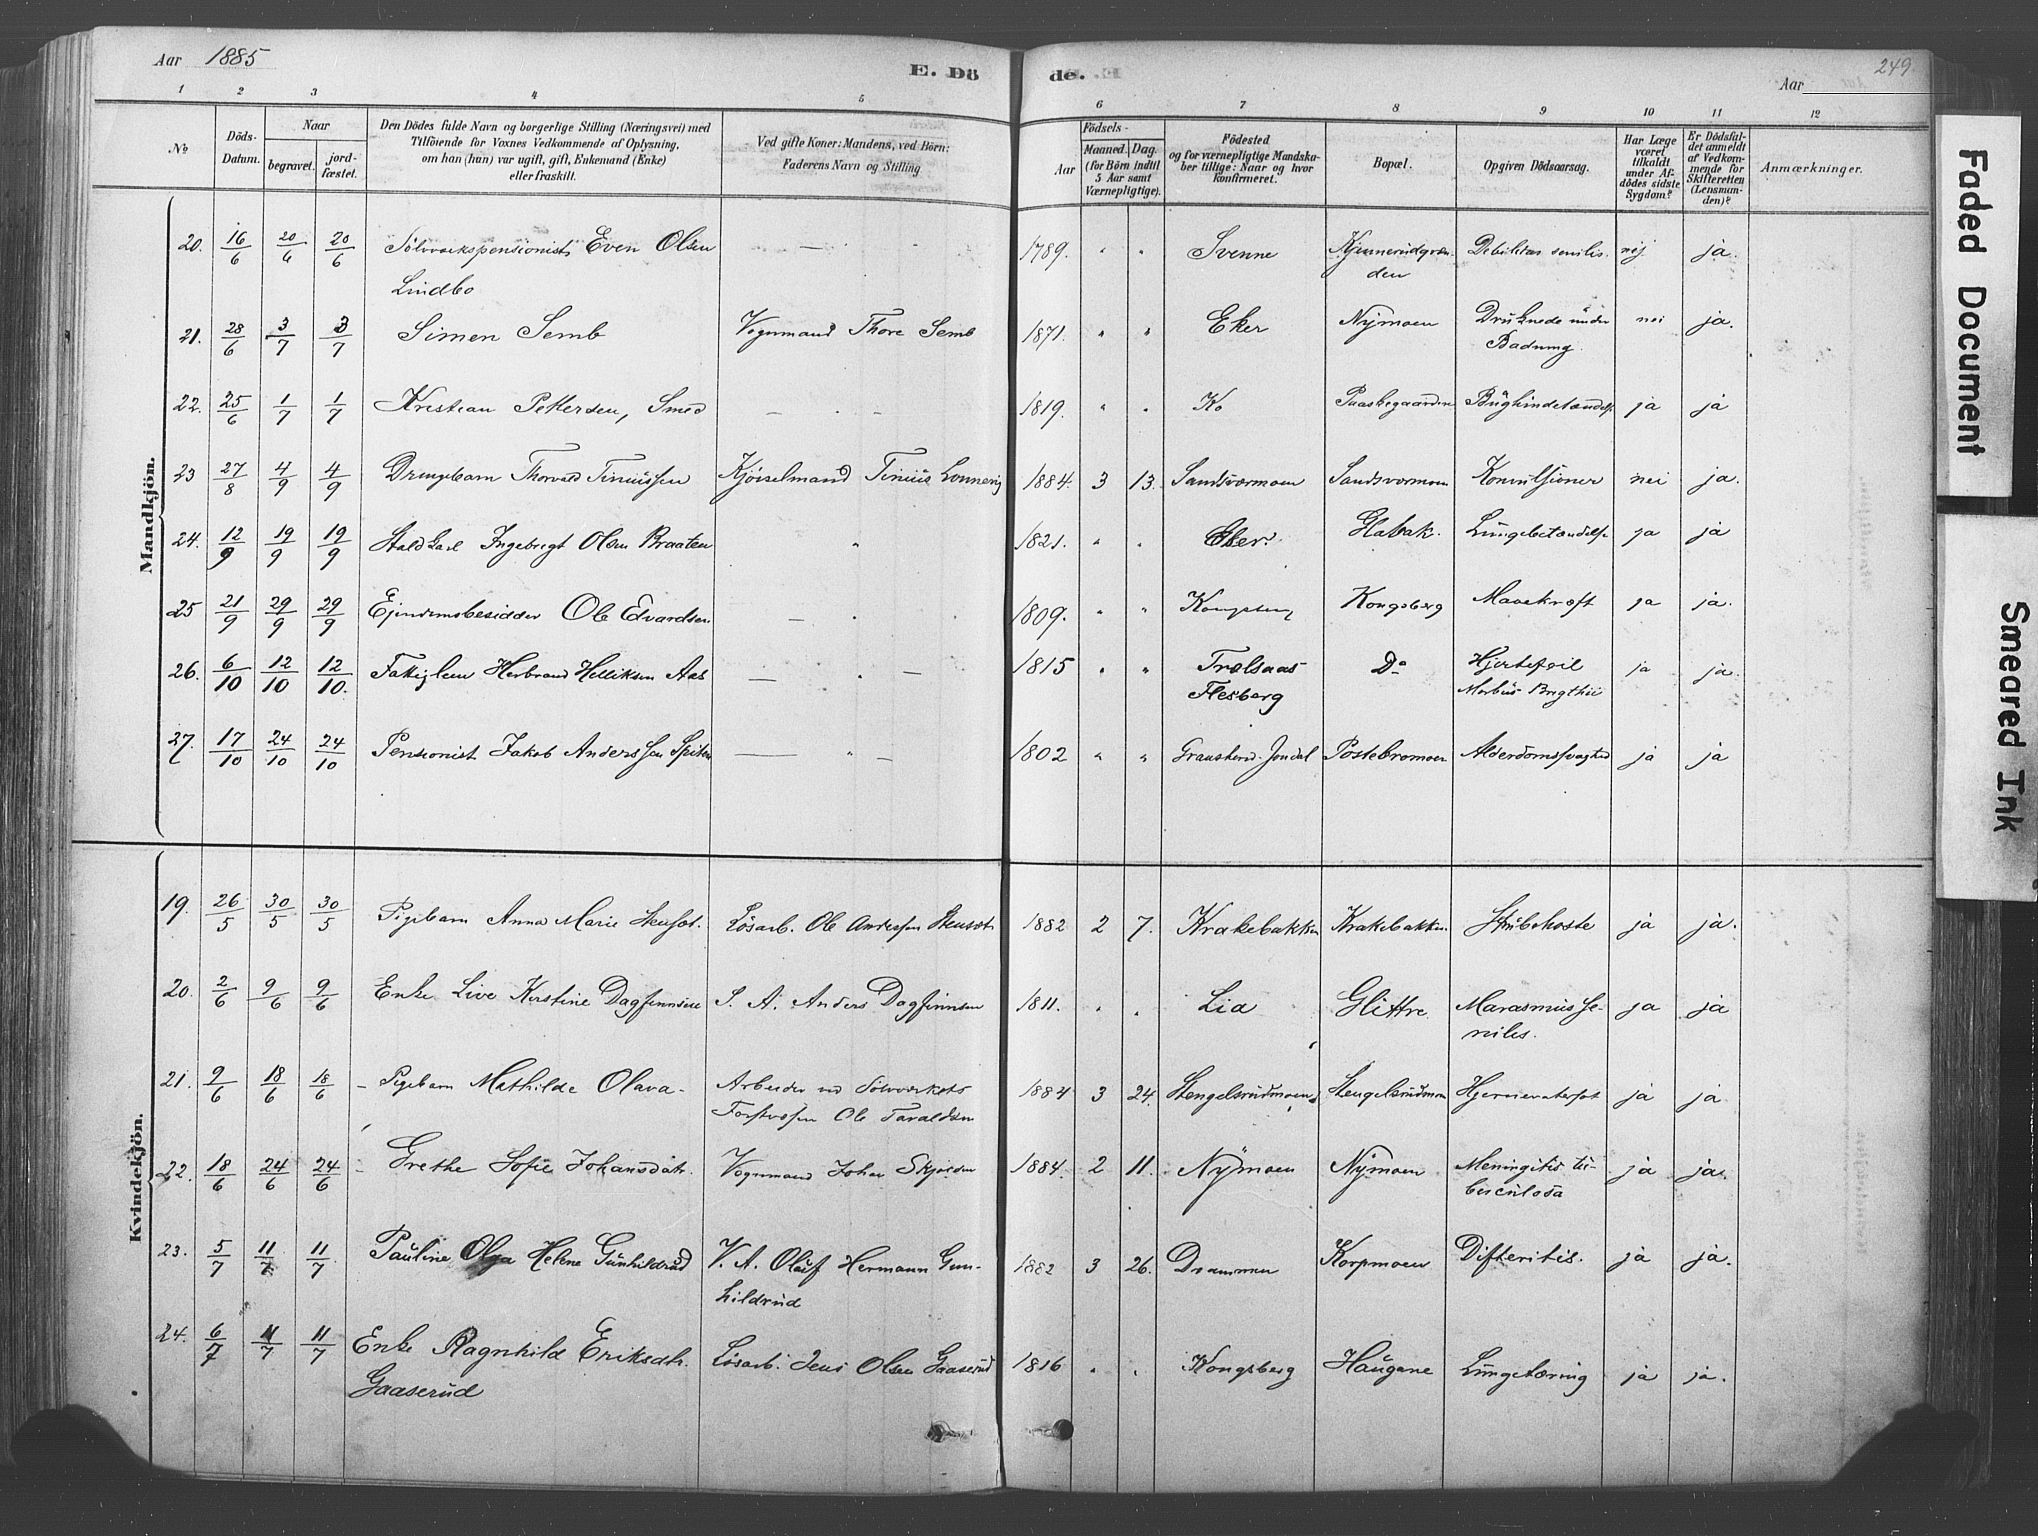 Aar 1885
E. Dö
de.
249
Aar
1 2 3 4 5 6 7 8 9 10 11 12
No
Döds-Datum.
Naar
begravet.
jord-fæstet.
Den Dödes fulde Navn og borgerlige Stilling (Næringsvei) med
Tilföiende for Voxnes Vedkommende af Oplysning,
om han (hun) var ugift, gift, Enkemand (Enke)
eller fraskilt.
Ved gifte Koner: Mandens, ved Börn:
Faderens Navn og Stilling
Födsels-
Aar
Maaned. Dag.
(for Börn indtil
5 Aar samt
Værnepligtige).
Födested
og for værnepligtige Mandska-
ber tillige: Naar og hvor
konfirmeret.
Bopæl.
Opgiven Dödsaarsag.
Har Læge
været
tilkaldt
under Af-
dödes sidste
Sygdom?
Er Dödsfal-
det anmeldt
af Vedkom-
mende for
Skifteretten
(Lensman-
den)?
Anmærkninger.
Mandkjön.
20. 16/6 20/6 20/6 Sölvverkspensionist Even Olsen — 1789. " " Svenne Kjennerudgræn- Debilitas senilis. nej ja.
Lindbo den
21. 28/6 3/7 3/7 Simen Semb Vognmand Thore Semb 1871. " " Eker Nymoen Druknede under nei ja.
Badning.
22. 25/6 1/7 1/7 Kristian Pettersen, Smed — 1819. " " Ko Paaskegaarden ja ja
23 27/8 4/9 4/9 Drengebarn Thorvald Tiniussen Kjörselmand Tinius 1884. 3 13. Sandsværmoen Sandsværmoen Konvulsioner nei ja.
24. 12/9 19/9 19/9 Ingebregt Olsen Braaten " 1821. " " Eker. Glabak. Lungebetændelse ja ja
25 21/9 29/9 29/9 Ejendomsbesidder Ole Edvardsen — " 1809. " " Kongsberg Kongsberg Mavekræft ja ja.
26. 6/10 12/10 12/10. Fattiglem Herbrand Helliksen Aas — " — 1815 " " Trælsaas Do Hjertefeil ja ja.
Flesberg Morbus Brigthii
27. 17/10 24/10 24/10 Pensionist Jakob Anderssen — " — 1802 " " Jondal Postebromoen Alderdomssvaghed ja ja
Kvindekjön.
19. 26/5 30/5 30/5 Pigebarn Anna Marie Stensæt. Lösarb. Ole Anderssen Stensæt 1882 2 7. Krakebakken Krakebakken. Strubehoste ja ja.
20. 2/6 9/6 9/6 Enke Live Kirstine Dagfinnsen S. A. Anders Dagfinnsen 1811. " " Lia Glittre. Marasmus Se- ja ja
niles.
21. 9/6 18/6 18/6 – Pigebarn Mathilde Olava. Arbeider ved Sölvverkets 1884 3 24. Stengelsrudmoen Stengelsrudmoen ja ja
Forstvæsen Ole Taraldsen
22. 18/6 24/6 24/6 – Grethe Sofie Johansdatr. Vognmand Johan 1884. 2 11. Nymoen Nymoen Meningitis tu- ja ja.
berculosa
23. 5/7 11/7 11/7 Pauline Olga Helene Gunhildrud V. A. Oluf Hermann Gun- 1882 3 26. Drammen Korpmoen Difteritis. ja ja.
hildrud
24. 6/7 11/7 11/7 Enke Ragnhild Eriksdtr. Lösarb. Jens Olsen Gaaserud 1816 " " Kongsberg Haugane Lungetæring ja ja.
Gaaserud
Faded Document
Smeared Ink